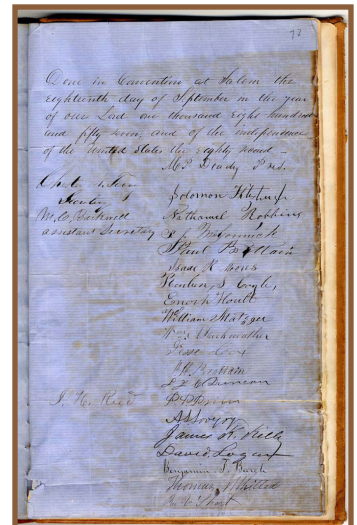 77
Done in Convention at Salem the
eighteenth day of September in the year
of our Lord one thousand eight hundred
and fifty seven, and of the independence
of the United States the eighty second –
M P Deady Pres.
Chester N. Terry
Secretary
M. C. Barkwell
assistant Secretary
Solomon Fitzhugh
Nathaniel Robbins
S J McCormick
Paul Brattain
Isaac R Moores
Reuben S Coyle,
Enoch Hoult
William Matzger
Jesse Cox
L J C Duncan
J. H. Reed
A L Lovejoy
James K. Kelly
David Logan
Benjamin F. Burch
Thomas Whitted